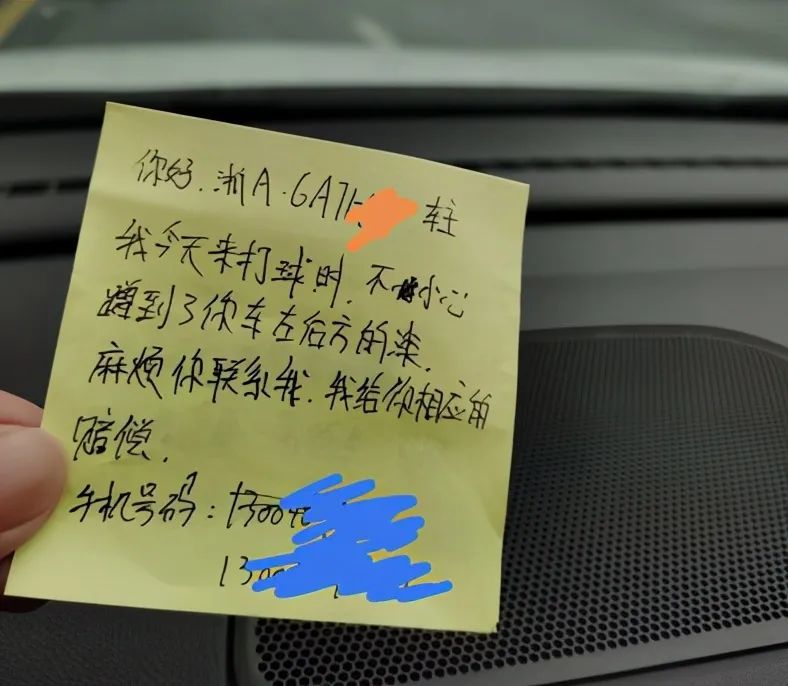 你好.浙A·6A7H 车主
我今天来打球时.不小心
蹭到了你车左后方的漆.
麻烦你联系我.我给你相应的
赔偿.
手机号码:1300
1300